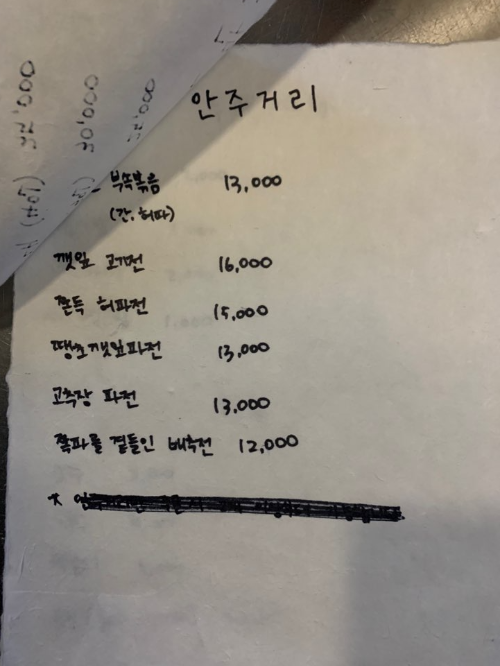 안주거리
부속볶음 13,000
(간, 허파)
깻잎 고기전 16,000
쫀득 허파전 15,000
땡초깻잎파전 13,000
고추장 파전 13,000
쪽파를 곁들인 배추전 12,000